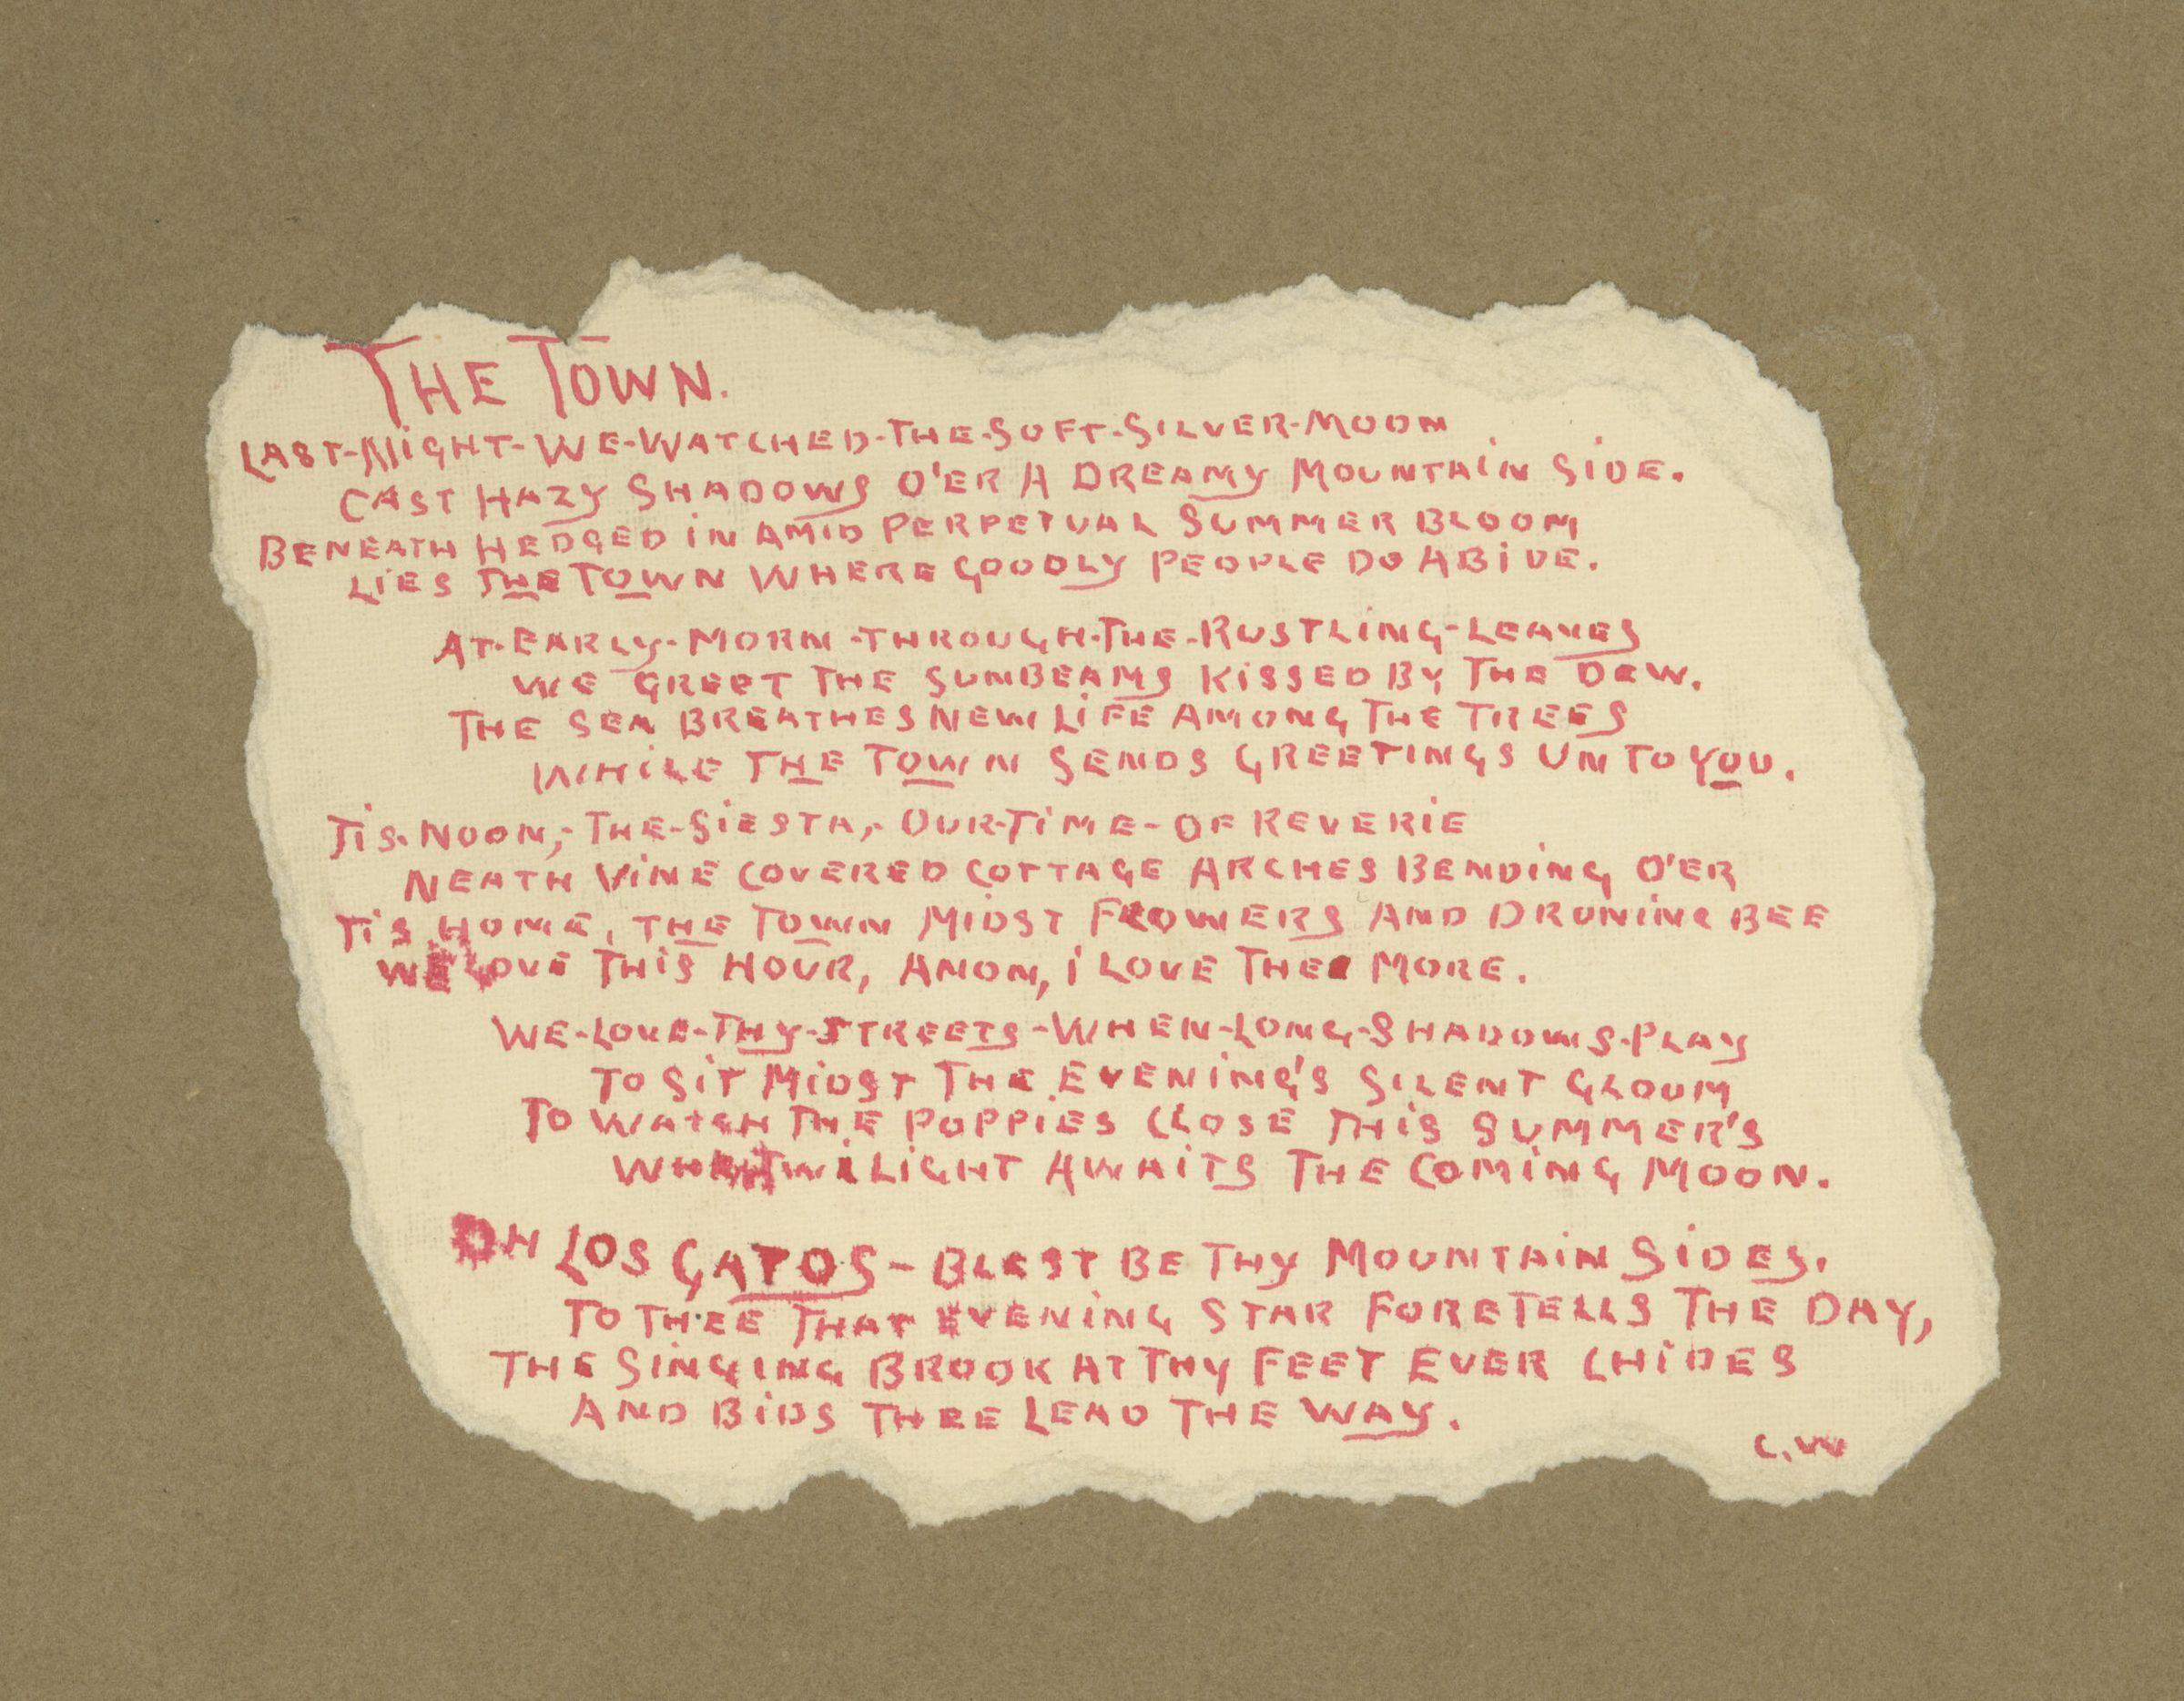 THE TOWN.
LAST-NIGHT-WE-WATCHED-THE-SOFT-SILVER-MOON
CAST HAZY SHADOWS O'ER A DREAMY MOUNTAIN SIDE.
BENEATH HEDGED IN AMID PERPETUAL SUMMER BLOOM
LIES THE TOWN WHERE GOODLY PEOPLE DO ABIDE.
AT-EARLY-MORN-THROUGH-THE-RUSTLING-LEAVES
WE GREET THE SUNBEAMS KISSED BY THE DEW.
THE SEA BREATHES NEW LIFE AMONG THE TREES
WHILE THE TOWN SENDS GREETINGS UNTO YOU.
TIS-NOON,-THE-SIESTA,-OUR-TIME-OF REVERIE
NEATH VINE COVERED COTTAGE ARCHES BENDING O'ER
TIS HOME, THE TOWN MIDST FLOWERS AND DRONING BEE
WE LOVE THIS HOUR, ANON, I LOVE THEE MORE.
WE-LOVE-THY-STREETS-WHEN-LONG-SHADOWS-PLAY
TO SIT MIDST THE EVENING'S SILENT GLOOM
TO WATCH THE POPPIES CLOSE THIS SUMMER'S
TWILIGHT AWAITS THE COMING MOON.
OH LOS GATOS - BLEST BE THY MOUNTAIN SIDES.
TO THEE THAT EVENING STAR FORETELLS THE DAY,
THE SINGING BROOK AT THY FEET EVER CHIDES
AND BIDS THEE LEAD THE WAY.
C.W